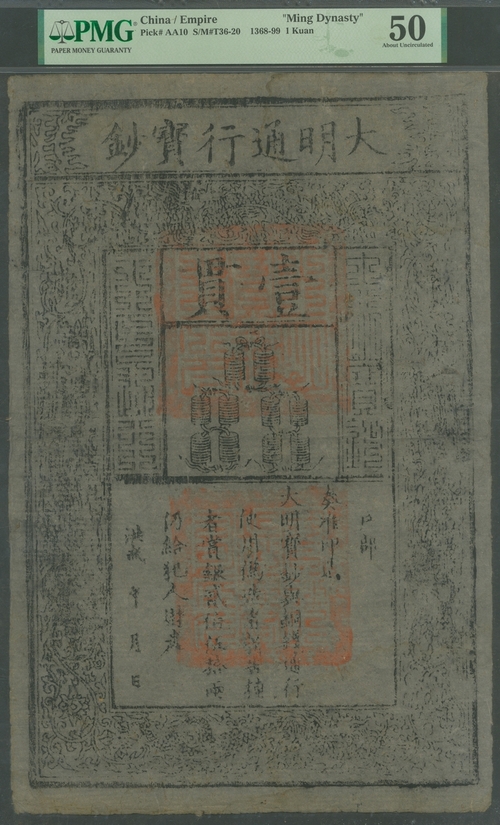 PMG
PAPER MONEY GUARANTY
China / Empire "Ming Dynasty"
Pick# AA10 S/M#T36-20 1368-99 1 Kuan
50
About Uncirculated
大明通行寶鈔
壹貫
奏准印造
大明寶鈔與銅錢通行
使用偽造者斬告捕
者賞銀貳佰伍拾兩
仍給犯人財產
洪武 年 月 日